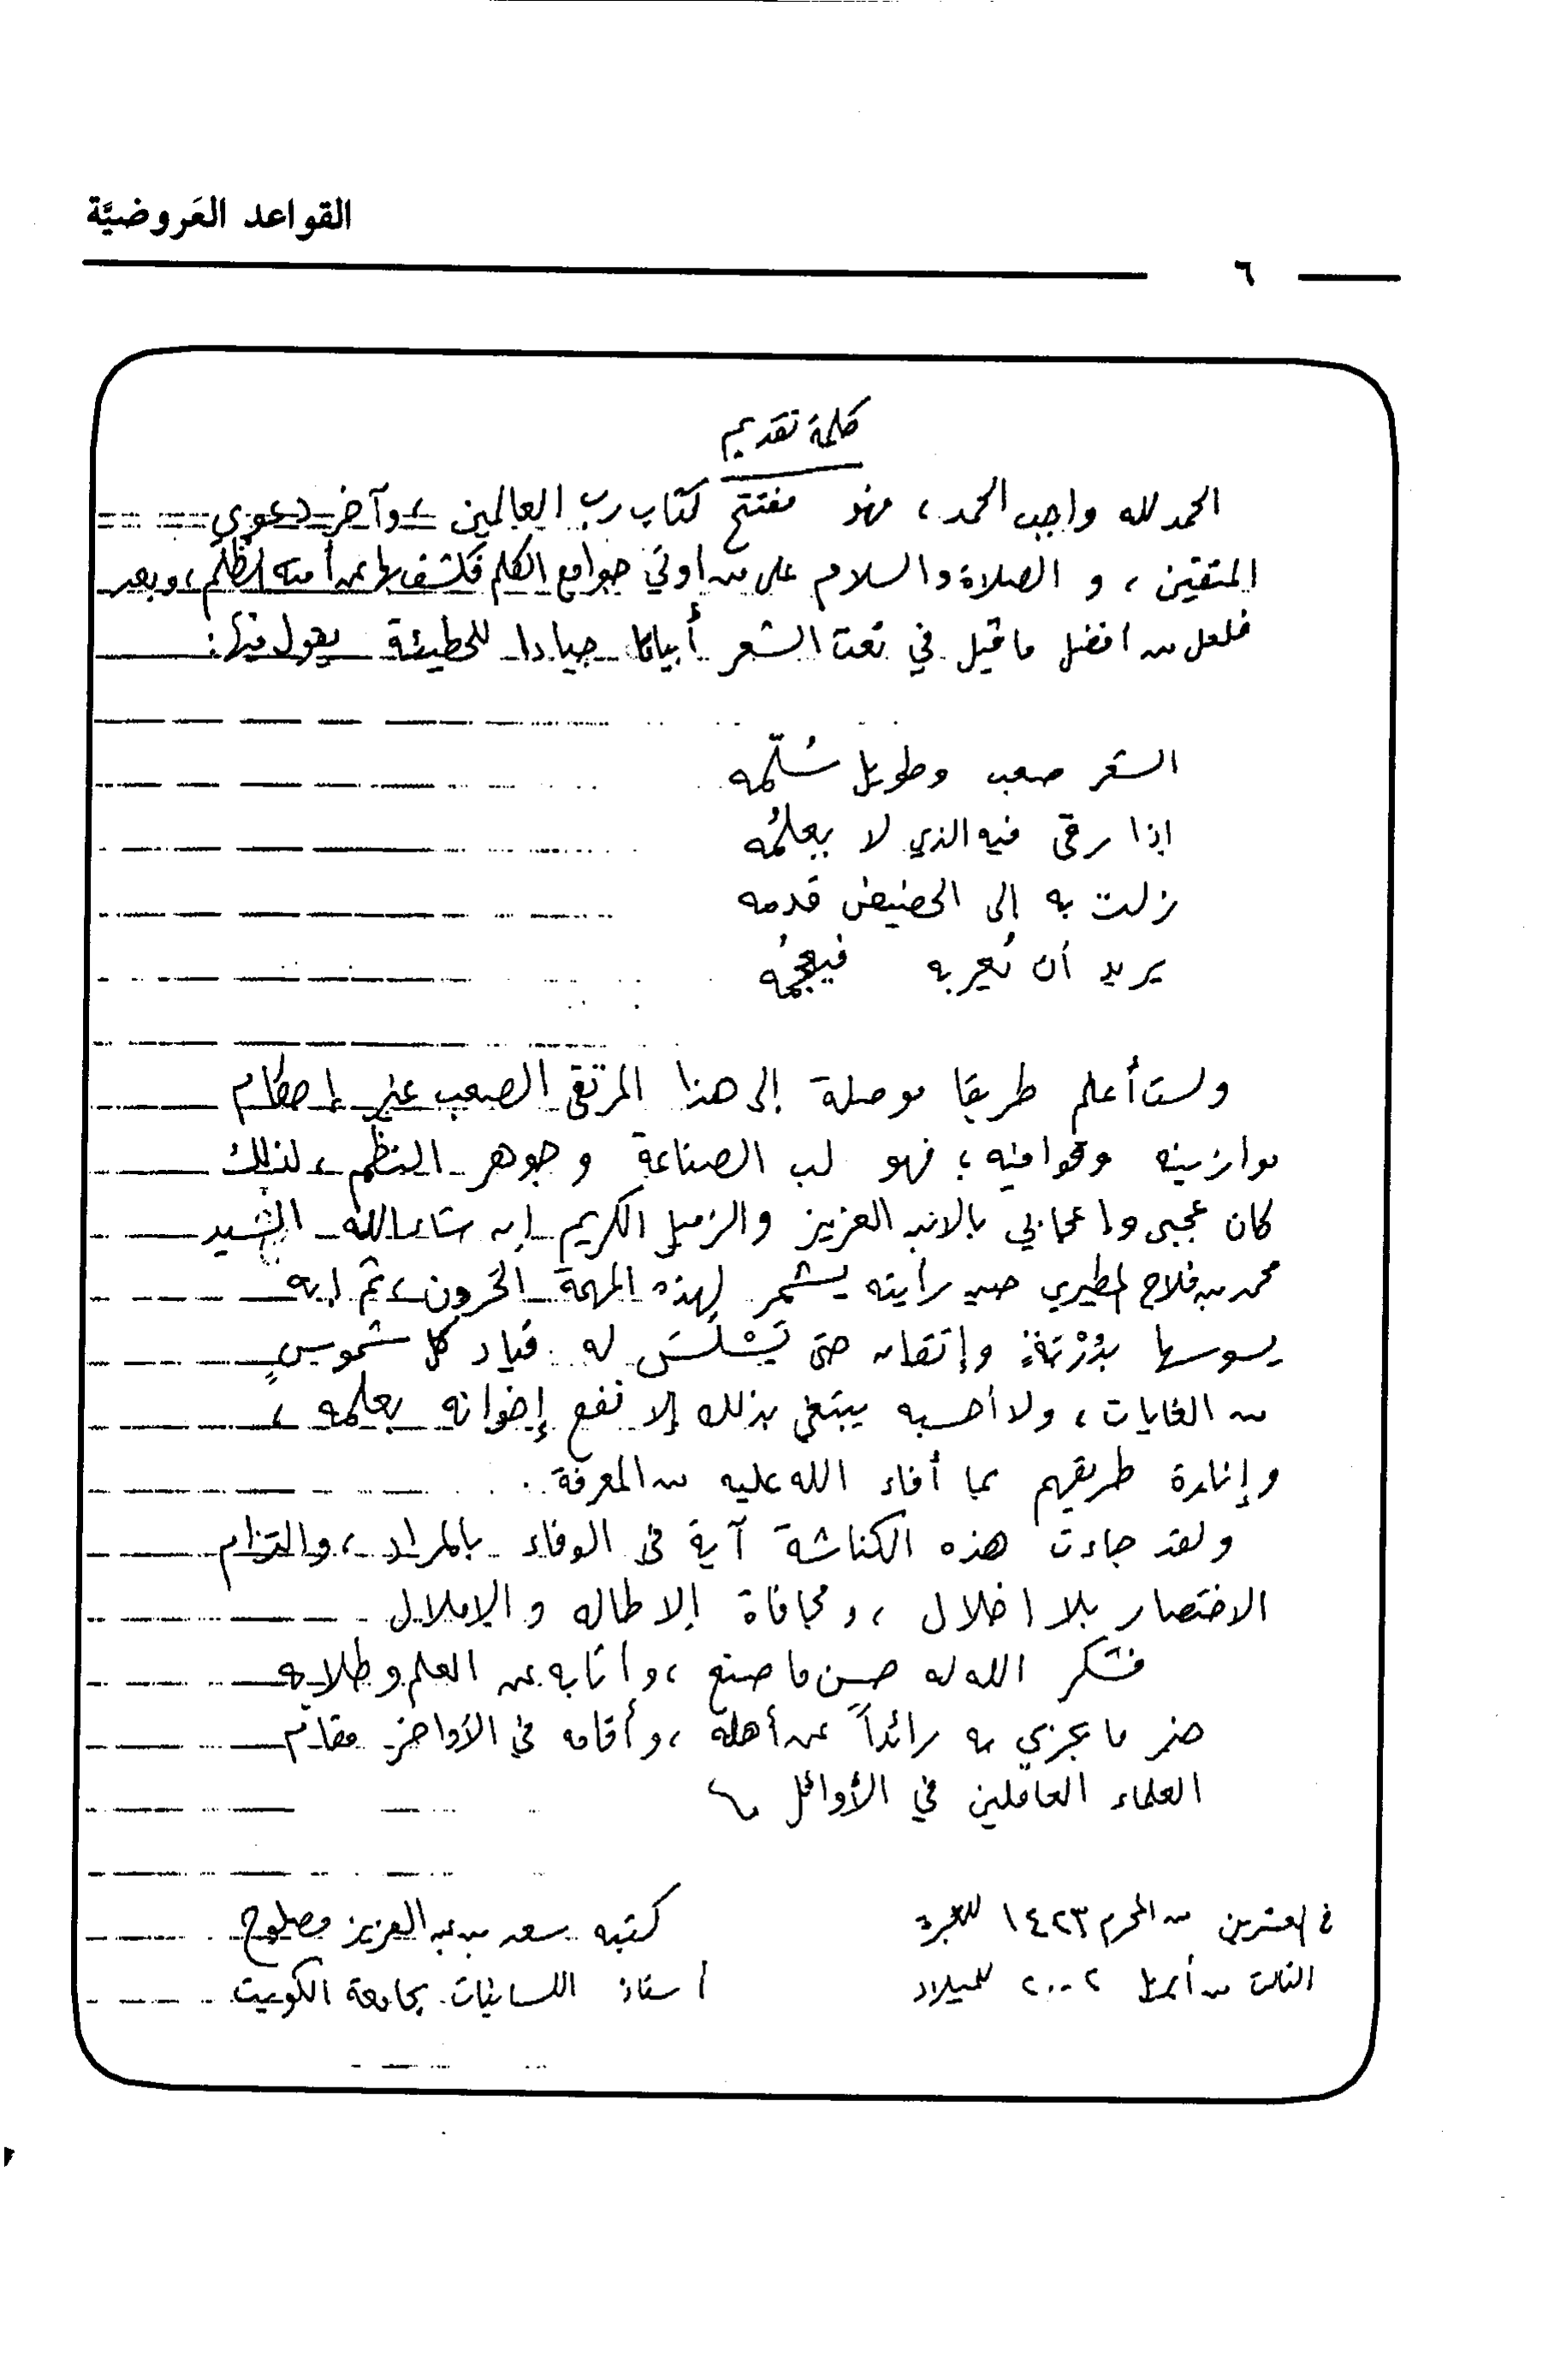 القواعد العَروضيَّة
٦
كلمة تقديم
الحمد لله واجب الحمد، فهو مفتتح كتاب رب العالمين، وآخر دعوى
المتقين، و الصلاة والسلام على من أوتي جوامع الكلم فكشف بها عن أمته الظُّلَم، وبعد
فلعل من افضل ما قيل في نعت الشعر أبياتا جيادا للحطيئة يقول فيها:
الشعر صعب وطويل سُلّمه
إذا رقى فيه الذي لا يعلمُه
زلت به إلى الحضيض قدمه
يريد أن يُعربه فيعجمُه
ولست أعلم طريقا موصلة إلى هذا المرتقى الصعب غير إحكام
موازينه وقوافيه؛ فهو لب الصناعة وجوهر النظم، لذلك
كان عجبي وإعجابي بالابن العزيز والزميل الكريم إن شاء الله
محمد بن فلاح المطيري حين رأيته يشمر لهذه المهمة الحَرون، ثم إنه
يسوسها بدُرْبَةٍ وإتقان حتى يَسْلَسَ له قياد كل شموسٍ
من الغايات، ولا أحسبه يبتغي بذلك إلا نفع إخوانه بعلمه،
وإنارة طريقهم بما أفاء الله عليه من المعرفة.
ولقد جاءت هذه الكناشة آية في الوفاء بالمراد، والتزام
الاختصار بلا اخلال، ومجافاة الإطالة والإملال
فشكر الله له حسن ما صنع، وأثابه عن العلم وطلابه
خير ما يجزي به رائداً عن أهله، وأقامه في الأواخر مقام
العلماء العاملين في الأوائل
في العشرين من المحرم ١٤٢٣ للهجرة
الثالث من أبريل ٢٠٠٢ للميلاد
كتبه سعد بن عبد العزيز مصلوح
أستاذ اللسانيات بجامعة الكويت